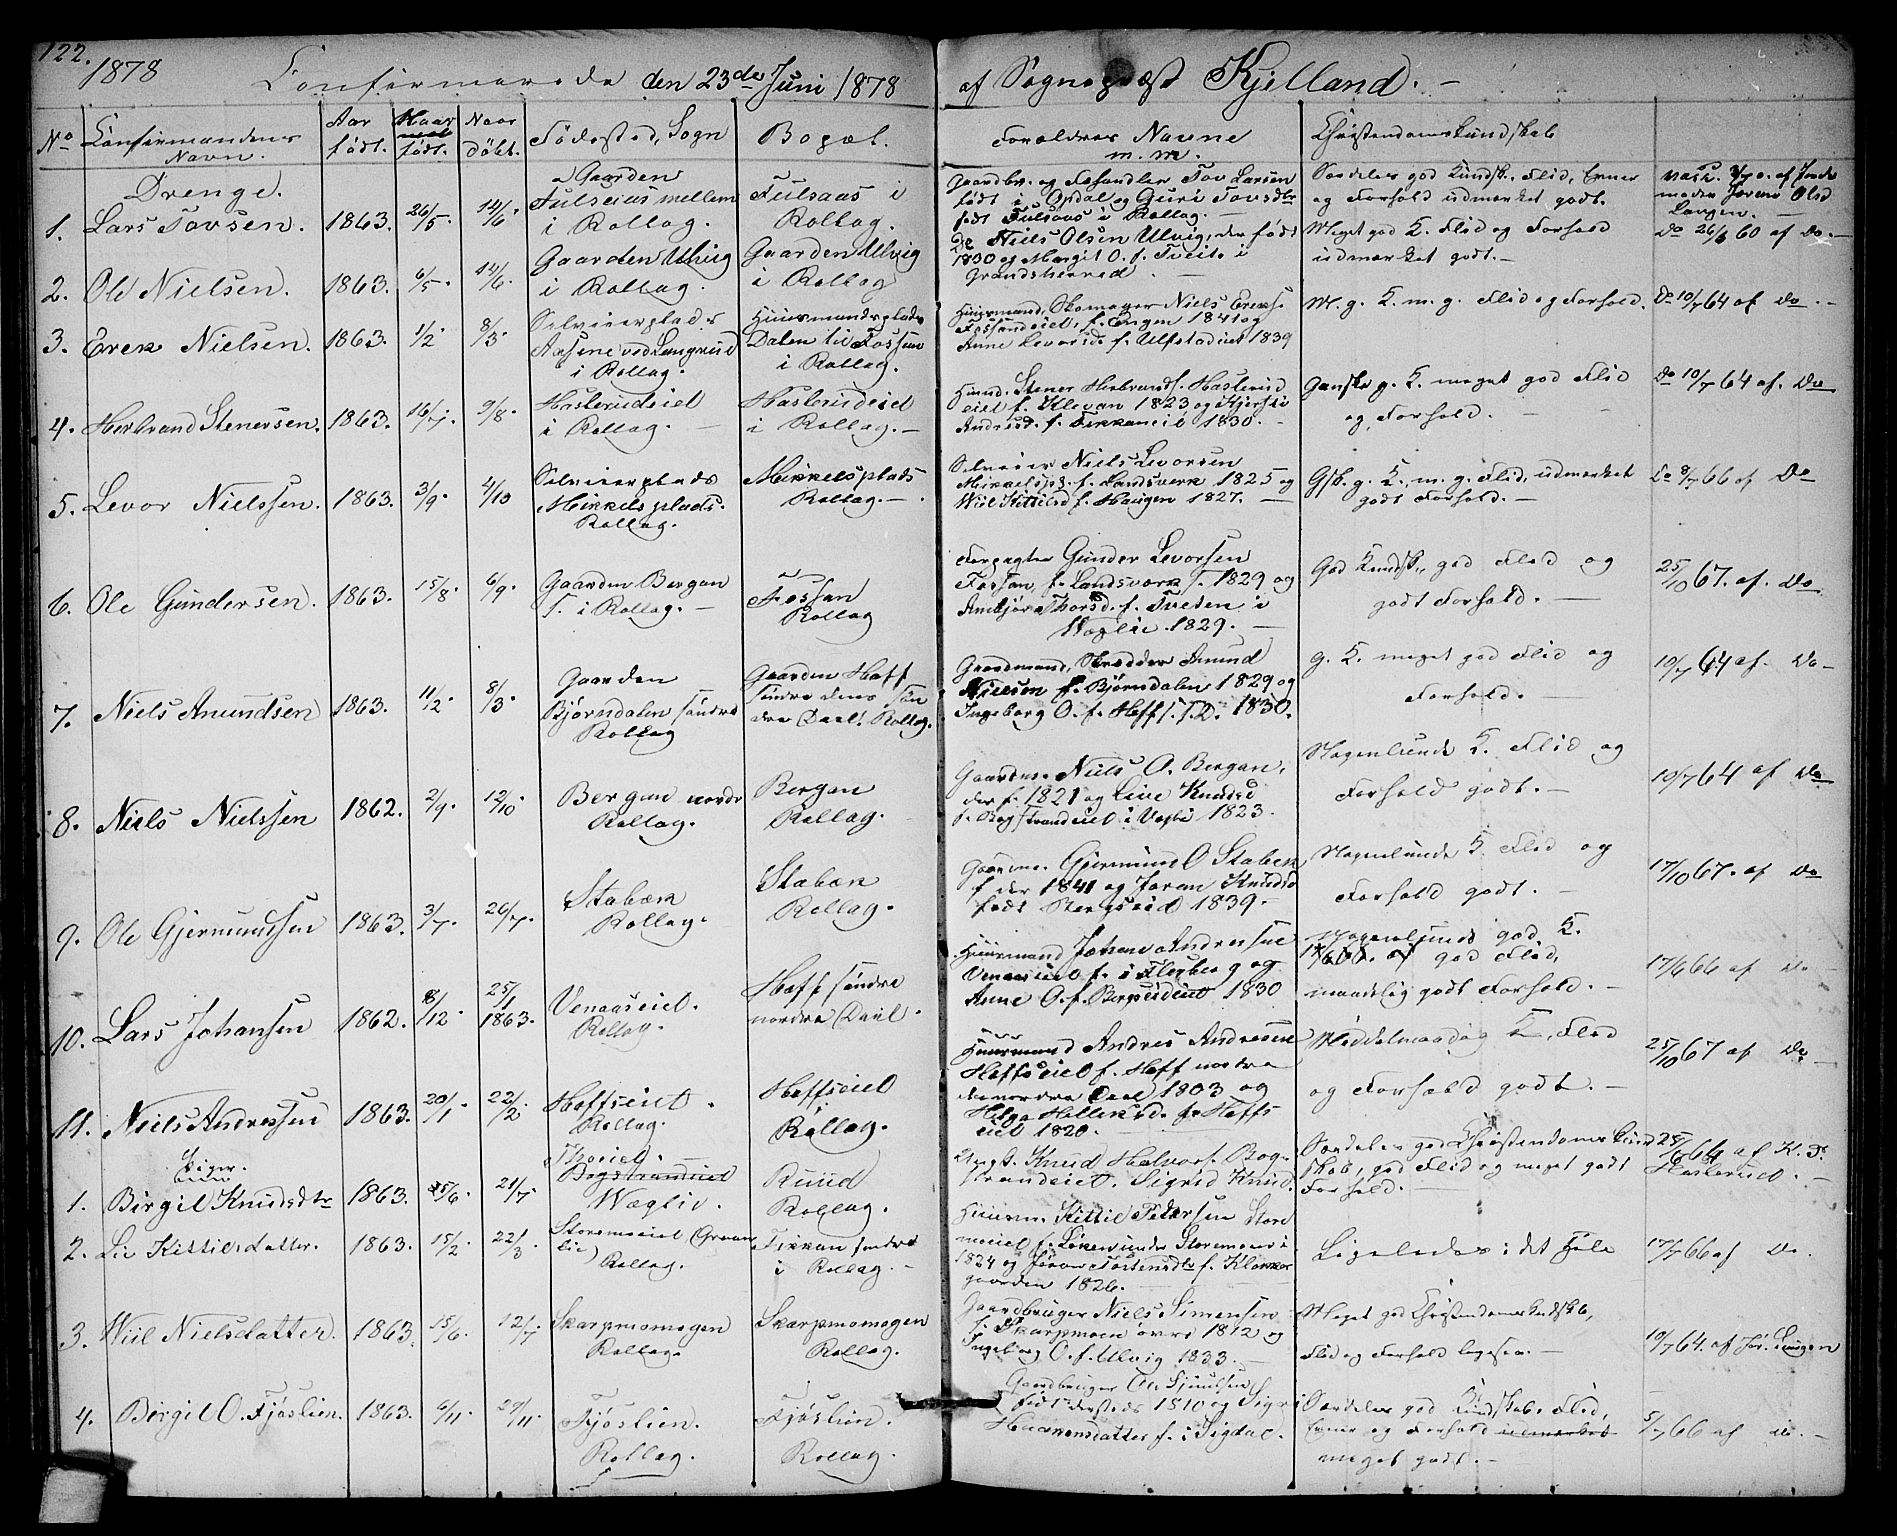 122.
1878
Confirmerede den 23de Juni 1878 af Sogneprest Kjelland. -
No Confirmandens Navn.
Aar født.
Naar født.
Naar døbt.
Fødested, Sogn
Bopæl.
Forældres Navne m. m.
Christendomskundskab
Drenge.
1. Lars Tovsen. 1863. 26/5. 14/6.
Gaarden
i Rollag.
Fulsaas i
Rollag.
Gaardbr. og Føhandler Tov Larsen
født i Opdal og Guri Tovsdtr
født Fulsaas i Rollag. -
Særdeles god Kundsk., Flid, Evner
og Forhold udmærket godt.
vacc.
Langen. -
2. Ole Nielsen. 1863. 6/5. 14/6.
Gaarden Ulvig
i Rollag.
Gaarden Ulvig
i Rollag
Niels Olsen Ulvig, der født
1830 og Margit O. f. Tveiten i
Gransherred. -
Meget god K. Flid og Forhold
udmærket godt. -
Do 26/6 60 af Do. -
3. Erek Nielsen. 1863. 1/2. 8/3.
Selveierplads
Aasene ved Langerud
i Rollag.
Huusmandsplads
Dalen til Fossan
i Rollag.
Huusmand, Skomager Niels Ereks.
Fossaneiet, f. Engen 1841 og
Anne Levorsd. f. Ulfstadeiet 1839
M. g. K. m. g. Flid og Forhold.
Do 10/7 64 af Do. -
4. Herbrand Stenersen. 1863. 16/7. 9/8.
Haslerudeiet
i Rollag. -
Haslerudeiet
i Rollag. -
Huusmd. Stener Herbrands. Haslerud
eiet f. Klevan 1823 og Kjersti
Andersd. f. Fekkaneie 1830. -
Ganske g. K. meget god Flid
og Forhold. -
Do 10/7 64 af. Do
5. Levor Nielssen. 1863. 3/9. 4/10
Selveierplads
Mikkelsplads.
Rollag.
Mikkelsplads
Rollag. -
Selveier Niels Levorsen
Mikkelspl. f. Landsverk 1825 og
Wiil Kittilsd f. Haugen 1827. -
g. K. m. g. Flid, udmærket
godt Forhold. -
Do 8/7 66 af Do
6. Ole Gundersen. 1863. 15/8. 6/9.
Gaarden Bergan
S. i Rollag. -
Fossan
Rollag
Forpagter Gunder Levorsen
Fossan, f. Landsverk S. 1829 og
Ambjør Thorsd. f. Tveten i
Væglie 1829. -
God Kundsk., god Flid og
godt Forhold. -
25/10 67. af. Do
7. Niels Anundsen 1863. 11/2. 8/3.
Gaarden
Bjørndalen søndre
Rollag
Gaarden Hoff
søndre dens søn
dre Deel. Rollag.
Gaardmand, Skrædder Anund
Nielsen f. Bjørndalen 1829 og
Ingeborg O. f. Hoff S. S. D. 1830.
g. K. meget god Flid og
Forhold. -
10/7 64 af. Do -
8. Niels Nielssen 1862. 2/9. 12/10.
Bergan nordr
Rollag.
Bergan
Rollag.
Gaardm. Niels O. Bergan,
der f. 1821 og Live Knudsd
f. Bogstrandeiet i Vægli 1823.
Nogenlunde K. Flid og
Forhold godt. -
10/7 64 af Do
9. Ole Gjermundsen 1863. 3/7. 26/7.
Stabæk
Rollag.
Stabæk
Rollag.
Gaardm. Gjermund O Stabek
f der 1841 og Joran Knudsd
født Bergseid 1839. -
Nogenlunde K. Flid og
Forhold godt. -
17/10 67. af Do
10. Lars Johansen 1862. 8/12. 25/1 1863.
Venaaseiet.
Rollag.
Hoff søndre
nordre Deel.
Huusmand Johan Andressen
Venaaseiet f. i Flesberg og
Anne O. f. Bergseideiet 1830
Nogenlunde god K.
god Flid,
maadelig godt Forhold. -
17/6 66 af Do -
11. Niels Andressen 1863. 20/1. 22/2.
Hoffseiet.
Rollag.
Hoffseiet
Rollag.
Huusmand Andres Andresen
Hoffseiet f. Hoff nordre
Deel 1803 og
Helga Helleksd. f. Hoffs
eiet 1820. -
Middelmaadig K., Flid
og Forhold godt. -
25/10 67 af Do -
Piger.
1. Birgit Knudsdtr 1863. 25/6. 21/7.
Bogstrandeiet
Wæglie.
Ruud
Rollag.
Ungk. Knud Halvors. Bog-
strandeiet. Sigrid Knud.
Særdeles god Christendomskund
skab, god Flid og meget godt
Forhold. -
25/6 64 af K. P.
Haslerud. -
2. Liv Kittilsdatter. 1863. 15/2. 22/3.
Storemoeiet (Graan
lie) Rollag.
Fekkan søndre
i Rollag. -
Huusm. Kittil Pedersen Store
moeiet f. Løken under Storemoen i
1824 og Jøran Torstensdtr f. Klokker
gaarden 1826. -
Ligeledes i det Hele
17/7 66 af Do.
3. Wiil Nielsdatter. 1863. 15/6. 12/7
Skarpmomogen
Rollag.
Skarpmomogen
Rollag.
Gaardbruger Niels Simensen
f. Skarpmoen øvre 1812 og
Ingeborg O. f. Ulvig 1833. -
Meget god Christendomskundskb,
Flid og Forhold ligesaa. -
10/7 64. af Jør. Langen
4. Birgit O. Fjøslien. 1863. 6/11. 29/11.
Fjøslien.
Rollag.
Fjøslien.
Rollag.
Gaardbruger Ole
født sammesteds 1810 og Sigri
Haavensdatter f. i Sigdal.
Særdeles god Kundskab, Flid,
Evner og Forhold udmærket
meget godt. -
5/7 66 af do. -